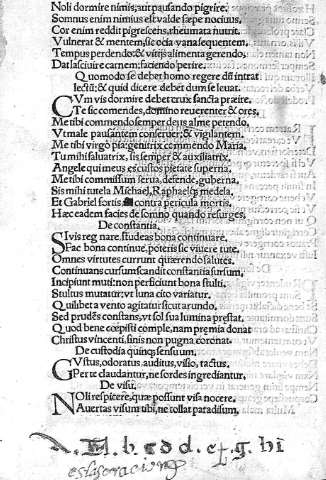 Noli dormire nimis, aut pausando pigrire.
Somnus enim nimius est valde sæpe nociuus,
Cor enim reddit pigrescens, rheumata nutrit.
Vulnerat & mentem, sic ocia vana sequentem,
Tempus perdendo: & vitijs alimenta gerendo,
Dat lasciuire carnem: faciendo perire.
Quomodo se debet homo regere dũ intrat
lectũ: & quid dicere debet dum se leuat.
CVm vis dormire debet crux sancta præire,
Te sic comendes, domino reuerenter & ores,
Me tibi commendo semper deus alme petendo,
Vt male pausantem conseruer: & vigilantem.
Me tibi virgo pia: genitrix commendo Maria.
Tu mihi saluatrix, sis semper & auxiliatrix,
Angele qui meus es custos pietate superna,
Me tibi commissum serua, defende, guberna,
Sis mihi tutela Michael, Raphaelq; medela,
Et Gabriel fortis contra pericula mortis.
Hæc eadem facies de somno quando resurges,
De constantia.
SI vis regnare, studeas bona continuare,
Fac bona continue, poteris sic viuere tute,
Omnes virtutes currunt quærendo salutes.
Continuans cursum scandit constantia sursum,
Incipiunt muti: non perficiunt bona stulti,
Stultus mutatur, vt luna cito variatur.
Quilibet a vento agitatur sicut arundo,
Sed prudẽs constans, vt sol sua lumina præstat.
Quod bene cœpisti comple, nam premia donat
Christus vincenti. sinis non pugna coronat.
De custodia quinq; sensuum.
GVstus, odoratus, auditus, visio, tactus,
Per te claudantur, ne sordes ingrediantur.
De visu.
NOli respicere, quæ possunt visa nocere.
Auertas visum tibi, ne tollat paradisum.